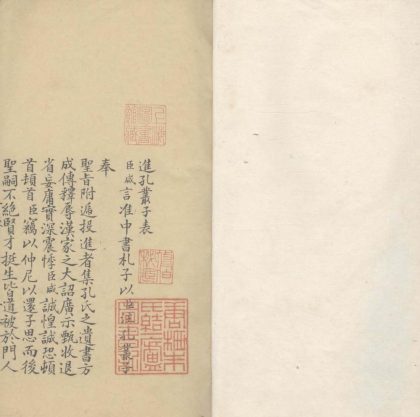 進孔叢子表
臣咸言准中書札子以臣注叢子
奉
聖旨附遞投進者集孔氏之遺書方
成傳釋辱漢家之大詔廣示甄收退
省妄庸實深震悸臣咸誠惶誠恐頓
首頓首臣竊以仲尼以還子思而後
聖嗣不絕賢才挺生皆道被於門人